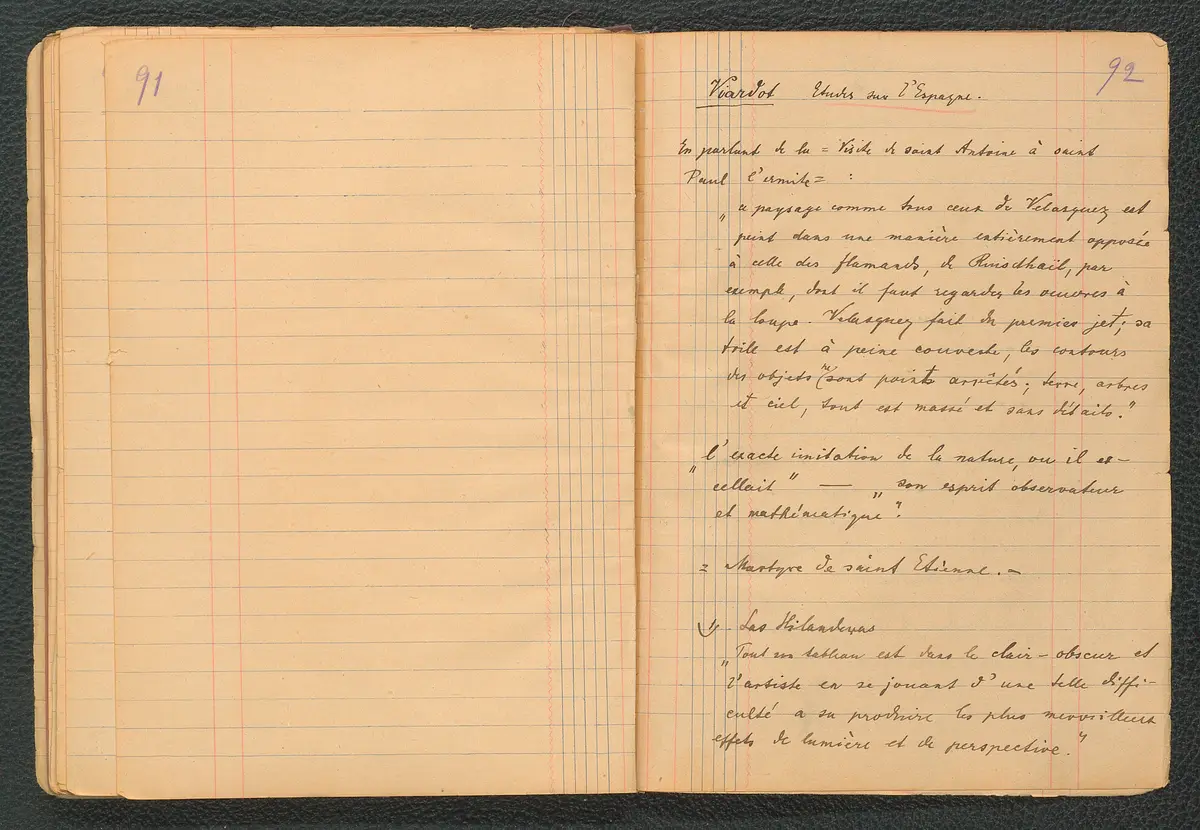 91
92
Viardot Etudes sur l'Espagne.
En parlant de la = Visite de saint Antoine à saint
Paul l'ermite = :
„ ce paysage comme tous ceux de Velasquez est
peint dans une manière entièrement opposée
à celle des flamands, de Ruisdhaël, par
exemple, dont il faut regarder les oeuvres à
la loupe. Velasquez fait du premier jet; sa
toile est à peine couverte, les contours
des objets ne sont points arrêtés; terre, arbres
et ciel, tout est massé et sans détails."
„ l'exacte imitation de la nature, ou il ex-
cellait " — „ son esprit observateur
et mathématique".
= Martyre de saint Etienne. -
Las Hilanderas
„ Tout un tableau est dans le clair-obscur et
l'artiste en se jouant d'une telle diffi-
culté a su produire les plus merveilleux
effets de lumière et de perspective."